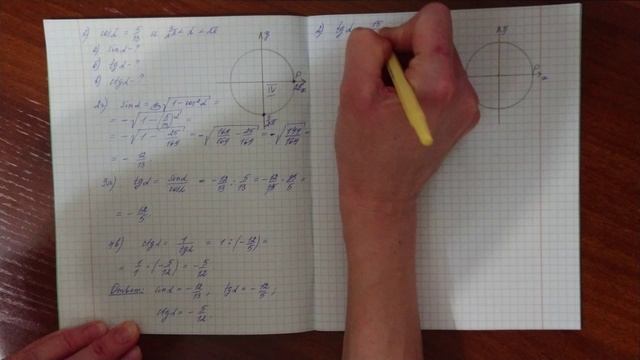 1) cos α = 5/13 и 3π/2 < α < 2π
а) sin α - ?
б) tg α - ?
в) ctg α - ?
y
P
2π
x
IV
3π/2
sin α = ±√(1 - cos²α) =
= -√(1 - (5/13)²) =
= -√(1 - 25/169) = -√(169/169 - 25/169) = -√(144/169) =
= - 12/13
tg α = sin α/cos α = - 12/13 : 5/13 = - 12/13 · 13/5 =
= - 12/5
ctg α = 1/tg α = 1 : (- 12/5) =
= 1/1 · (- 5/12) = - 5/12
Ответ: sin α = - 12/13, tg α = - 12/5,
ctg α = - 5/12.
2) tg α = 15
y
P
x